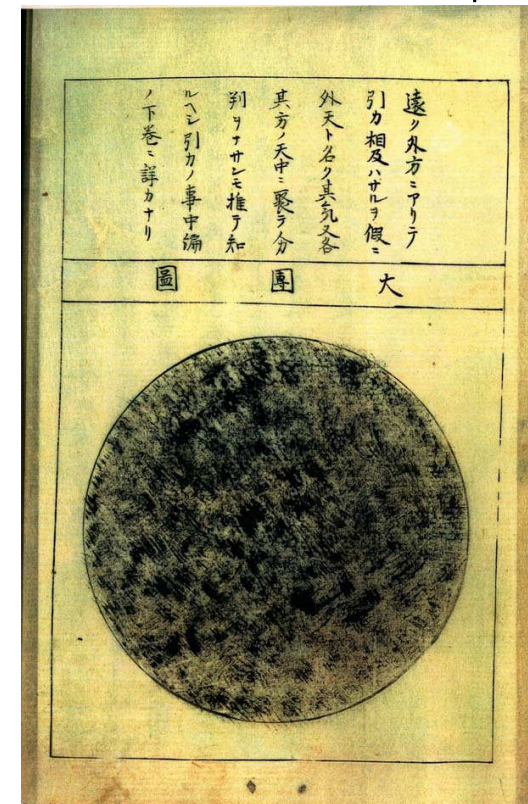 遠ク外方ニアリテ
引力相及ハサルヲ假ニ
外天ト名ク其気又各
其方ノ天中ニ聚テ分
判ヲナサンモ推テ知
ルヘシ引力ノ事中編
ノ下巻ニ詳カナリ
大團圖